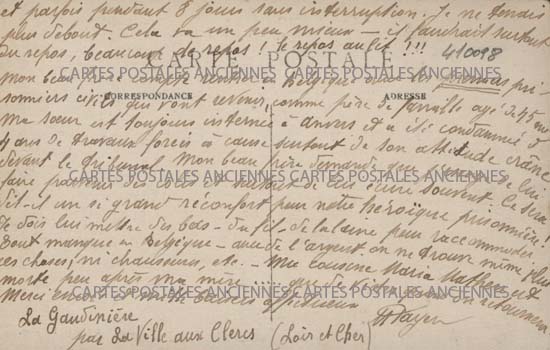 et parfois pendant 8 jours sans interruption. Je ne tenais
plus debout. Cela va un peu mieux - il faudrait surtout
du repos, beaucoup de repos! le repos au lit!!!
410098
CARTE POSTALE
Mon beau frère rentré en Belgique avec les pri-
CARTES POSTALES ANCIENNES CARTES POSTALES ANCIENNES
CORRESPONDANCE ADRESSE
sonniers civils qui vont revenir, comme père de famille agé de 45 ans
Ma sœur est toujours internée à Anvers et a été condamnée à
4 ans de travaux forcés à cause surtout de son attitude crâne
devant le tribunal. Mon beau frère demande que
CARTES POSTALES ANCIENNES CARTES POSTALES ANCIENNES
faire parvenir des colis et surtout de lui écrire souvent. Ce sera
dit-il un si grand réconfort pour notre héroïque prisonnière!
Je dois lui mettre des bas - du fil - de la laine pour raccommoder
Tout manque en Belgique - avec de l'argent on ne trouve même plus
ces choses, ni chaussures, etc. - Ma cousine Maria est
CARTES POSTALES ANCIENNES CARTES POSTALES ANCIENNES
morte peu après ma mère
Merci encore et
La Gaudinière
par La Ville aux Clercs (Loir et Cher)